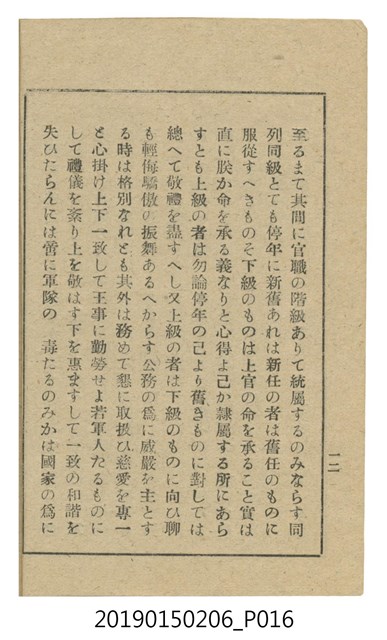 至るまて其間に官職の階級ありて統屬するのみならす同
列同級とても停年に新舊あれは新任の者は舊任のものに
服從すへきものそ下級のものは上官の命を承ること實は
直に朕か命を承る義なりと心得よ己か隷屬する所にあら
すとも上級の者は勿論停年の己より舊きものに對しては
總へて敬禮を盡すへし又上級の者は下級のものに向ひ聊
も輕侮驕傲の振舞あるへからす公務の爲に威嚴を主とす
る時は格別なれとも其外は務めて懇に取扱ひ慈愛を專一
と心掛け上下一致して王事に勤勞せよ若軍人たるものに
して禮儀を紊り上を敬はす下を惠ますして一致の和諧を
失ひたらんには啻に軍隊の 毒たるのみかは國家の爲に
一二
20190150206_P016